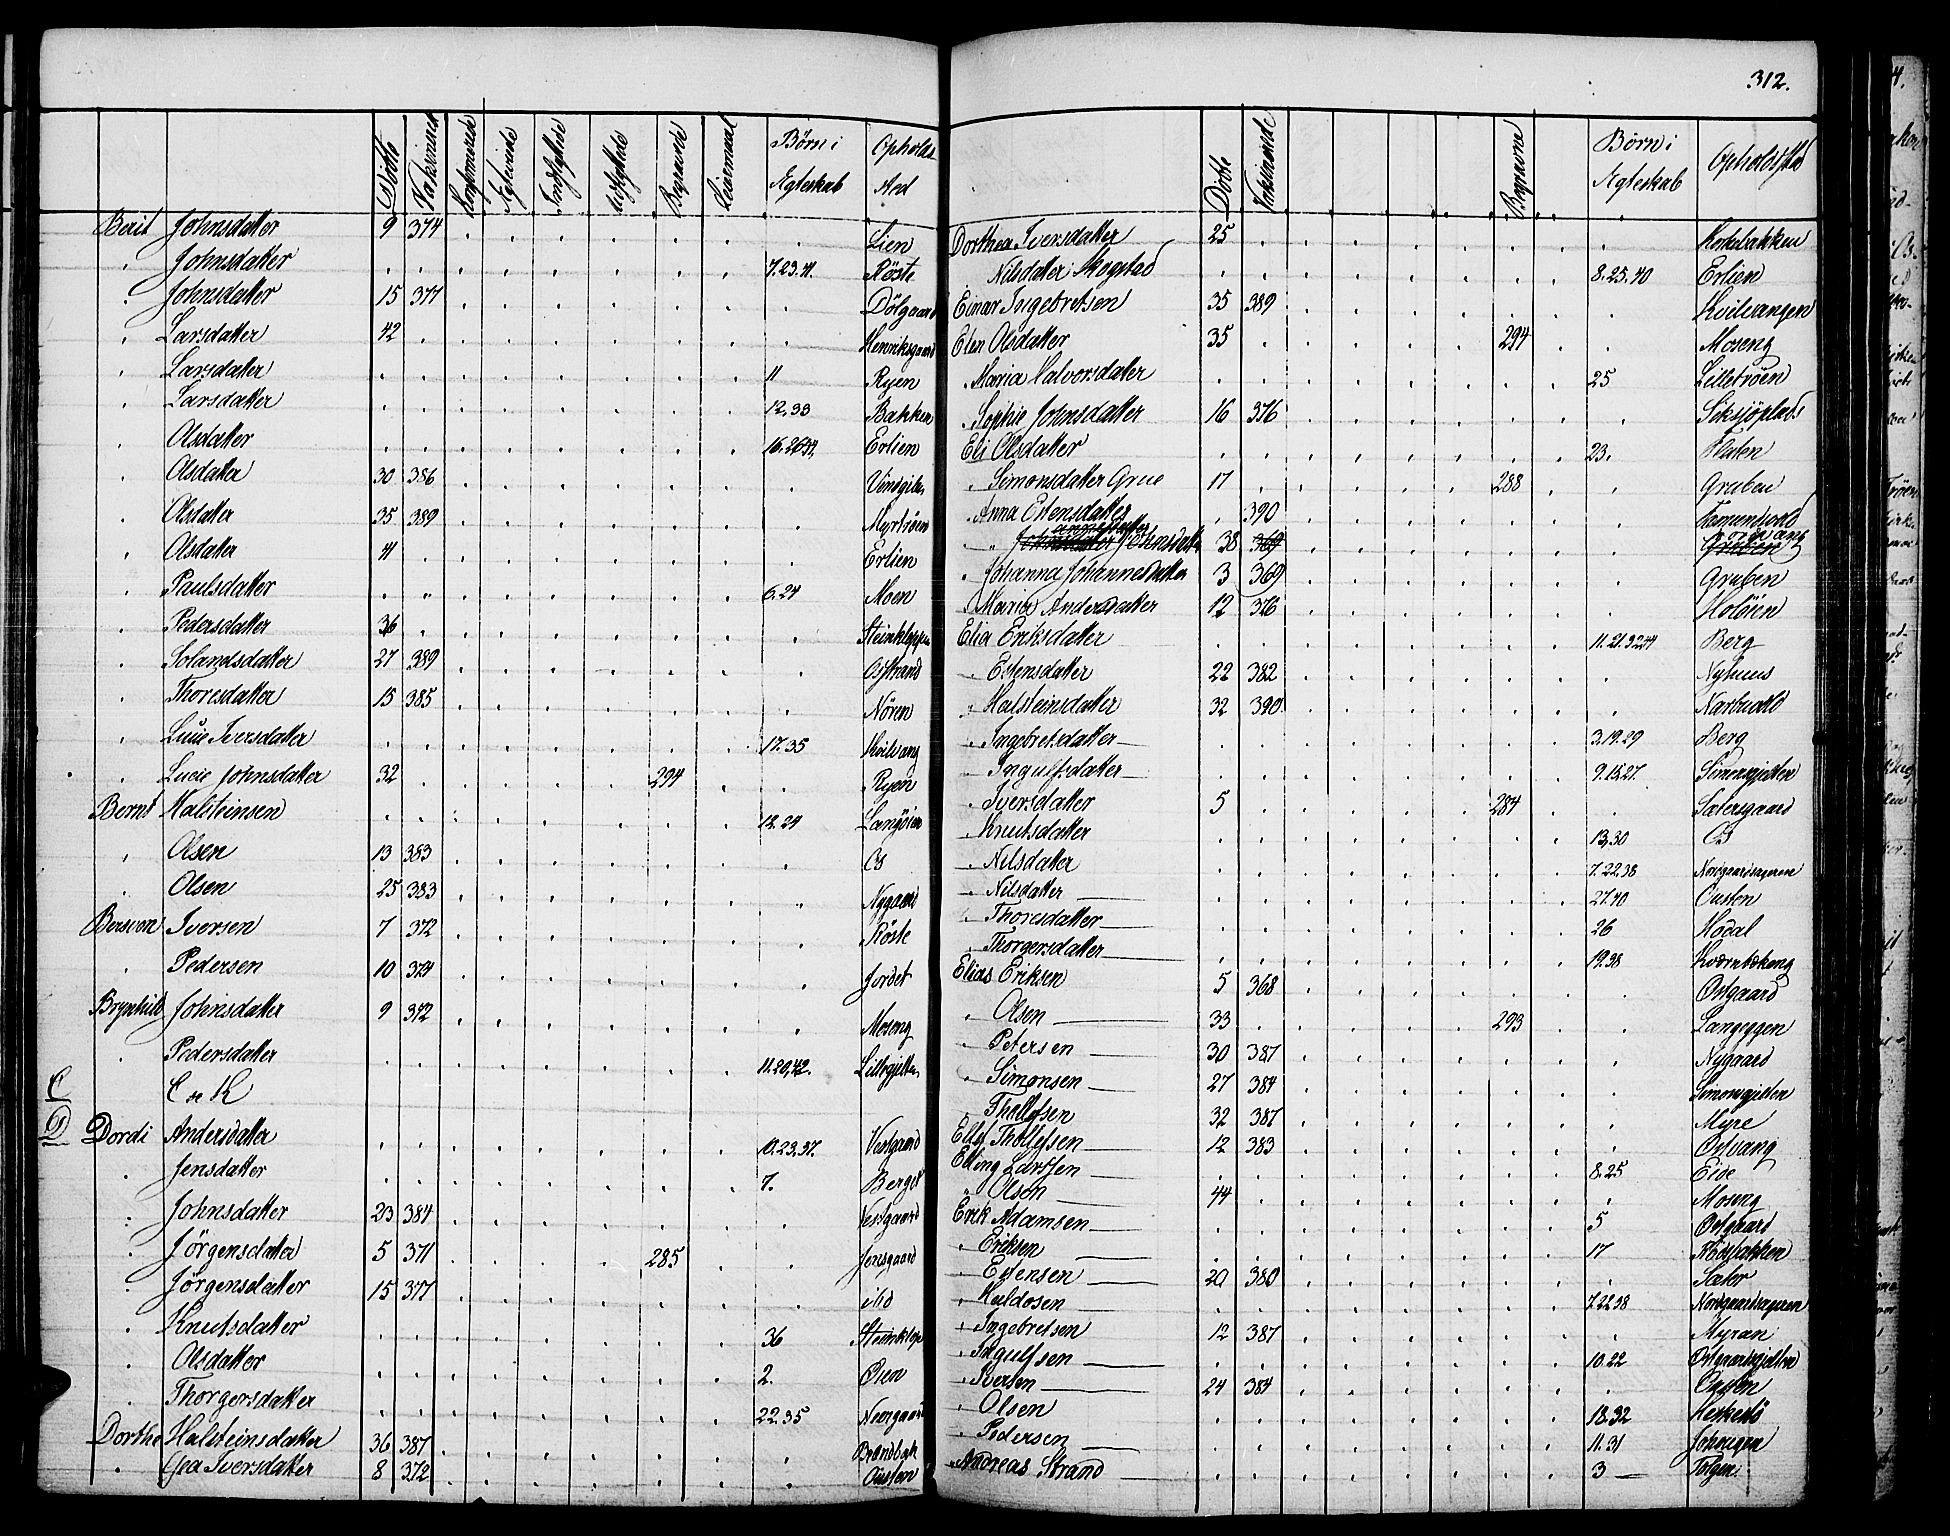 312.
Døbte Vaksinerede Konfirmerede Børn i Egteskab Opholds
Begravede Leiermaal
Berit Johnsdatter 9 374 Lien
Johnsdatter 7.23.41. Röste
Johnsdatter 15 377 Dölgaard
Larsdatter 42 Henriksgaard
Larsdatter 11 Ryen
Larsdatter 12.33 Bakken
Olsdatter Erlien
Olsdatter 30 386
Olsdatter 35 389 Myrtröen
Olsdatter 41 Erlien
Paulsdatter 6.24 Moen
Pedersdatter 36 Steinkleppen
Solandsdatter 27 389 Osstrand
Thoresdatter 15 385 Nören
Lucie Iversdatter 17.35 Kvilvang
Lucie Johnsdatter 32 294 Ryen
Bernt Halsteinsen 12.24 Langöien
Olsen 13 383 Os
Olsen 25 383 Nygaard
Bersven Iversen 7 372 Röste
Pedersen 10 374 Jordet
Brynhild Johnsdatter 9 372 Moseng
Pedersdatter 11.20,42.
C C se K
D Dordi Andersdatter 10.23.37. Vestgaard
Jensdatter 7. Berget
Johnsdatter 23 384 Vestgaard
Jörgensdatter 5 371 285 Jensgaard
Jörgensdatter 15 377 ibid
Knutsdatter 36 Steinklep
Olsdatter 2. Öien
Thorgersdatter 22.35
Dorthe Halsteinsdatter 36 387
Iversdatter 8 372 Ousten
Døbte Vaksinerede Begravne Børn i Egteskab Opholdssted
Dorthea Iversdatter 25
Nilsdatter Skogstad 8.25.40 Erlien
Einar Ingebretsen 35 389 Kvilvangen
Elen Olsdatter 35 294 Moseng
Maria Halvorsdatter 25 Lilletröen
Sophie Johnsdatter 16 376
Eli Olsdatter 23. Floten
Simonsdatter Grue 17 288 Gruben
Anna Estensdatter 390
Johnsdatter 38 369
Johanna Johannesdatter 3 369 Gruben
Maria Andersdatter 12 376 Holöien
Elia Eriksdatter Berg
Estensdatter 22 382 Nyhuus
Halsteinsdatter 32 390 Narbuvold
Ingebretsdatter 3.19.29 Berg
Ingulfsdatter 9.15.27 Simensgjelten
Iversdatter 5 284 Sætersgaard
Knutsdatter 13,30 Os
Nilsdatter 7.22.38
Nilsdatter 27.40 Ousten
Thoresdatter 26 Hodal
Thorgersdatter 19.38
Elias Eriksen 5 368 Östgaard
Olsen 33 293 Langeggen
Petersen 30 387 Nygaard
Simonsen 27 384
Thollefsen 32 387 Myre
Ellef Thollefsen 12 383 Östvang
Elling Larssen 8.25 Eide
Olsen 44 Moseng
Erik Adamsen 5 Östgaard
Eriksen 17
Estensen 20 380 Sæter
Haldosen 7.22.38
Ingebretsen 12 387 Myran
Ingulfsen 10.22
Iversen 24 384 Ousten
Olsen 18.32
Pedersen 11.31
Andreas Strand 3 Tolgen